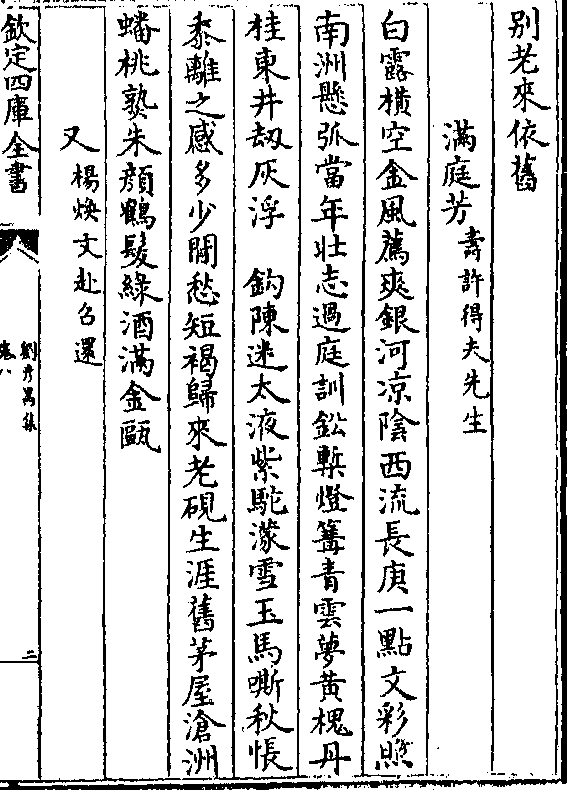 別老來依舊
滿庭芳 壽許得夫先生
白露橫空金風薦爽銀河凉陰西流長庚一點文彩照
南洲懸弧當年壯志過庭訓鉛槧燈篝青雲夢黃槐丹
桂東井刼灰浮　鈎陳迷太液紫駝濛雪玉馬嘶秋悵
黍離之感多少閒愁短褐歸來老硯生涯舊茅屋滄洲
蟠桃熟朱顔鶴髮綠酒滿金甌
又 楊煥文赴召還
欽定四庫全書
劉彦昺集
卷八
二